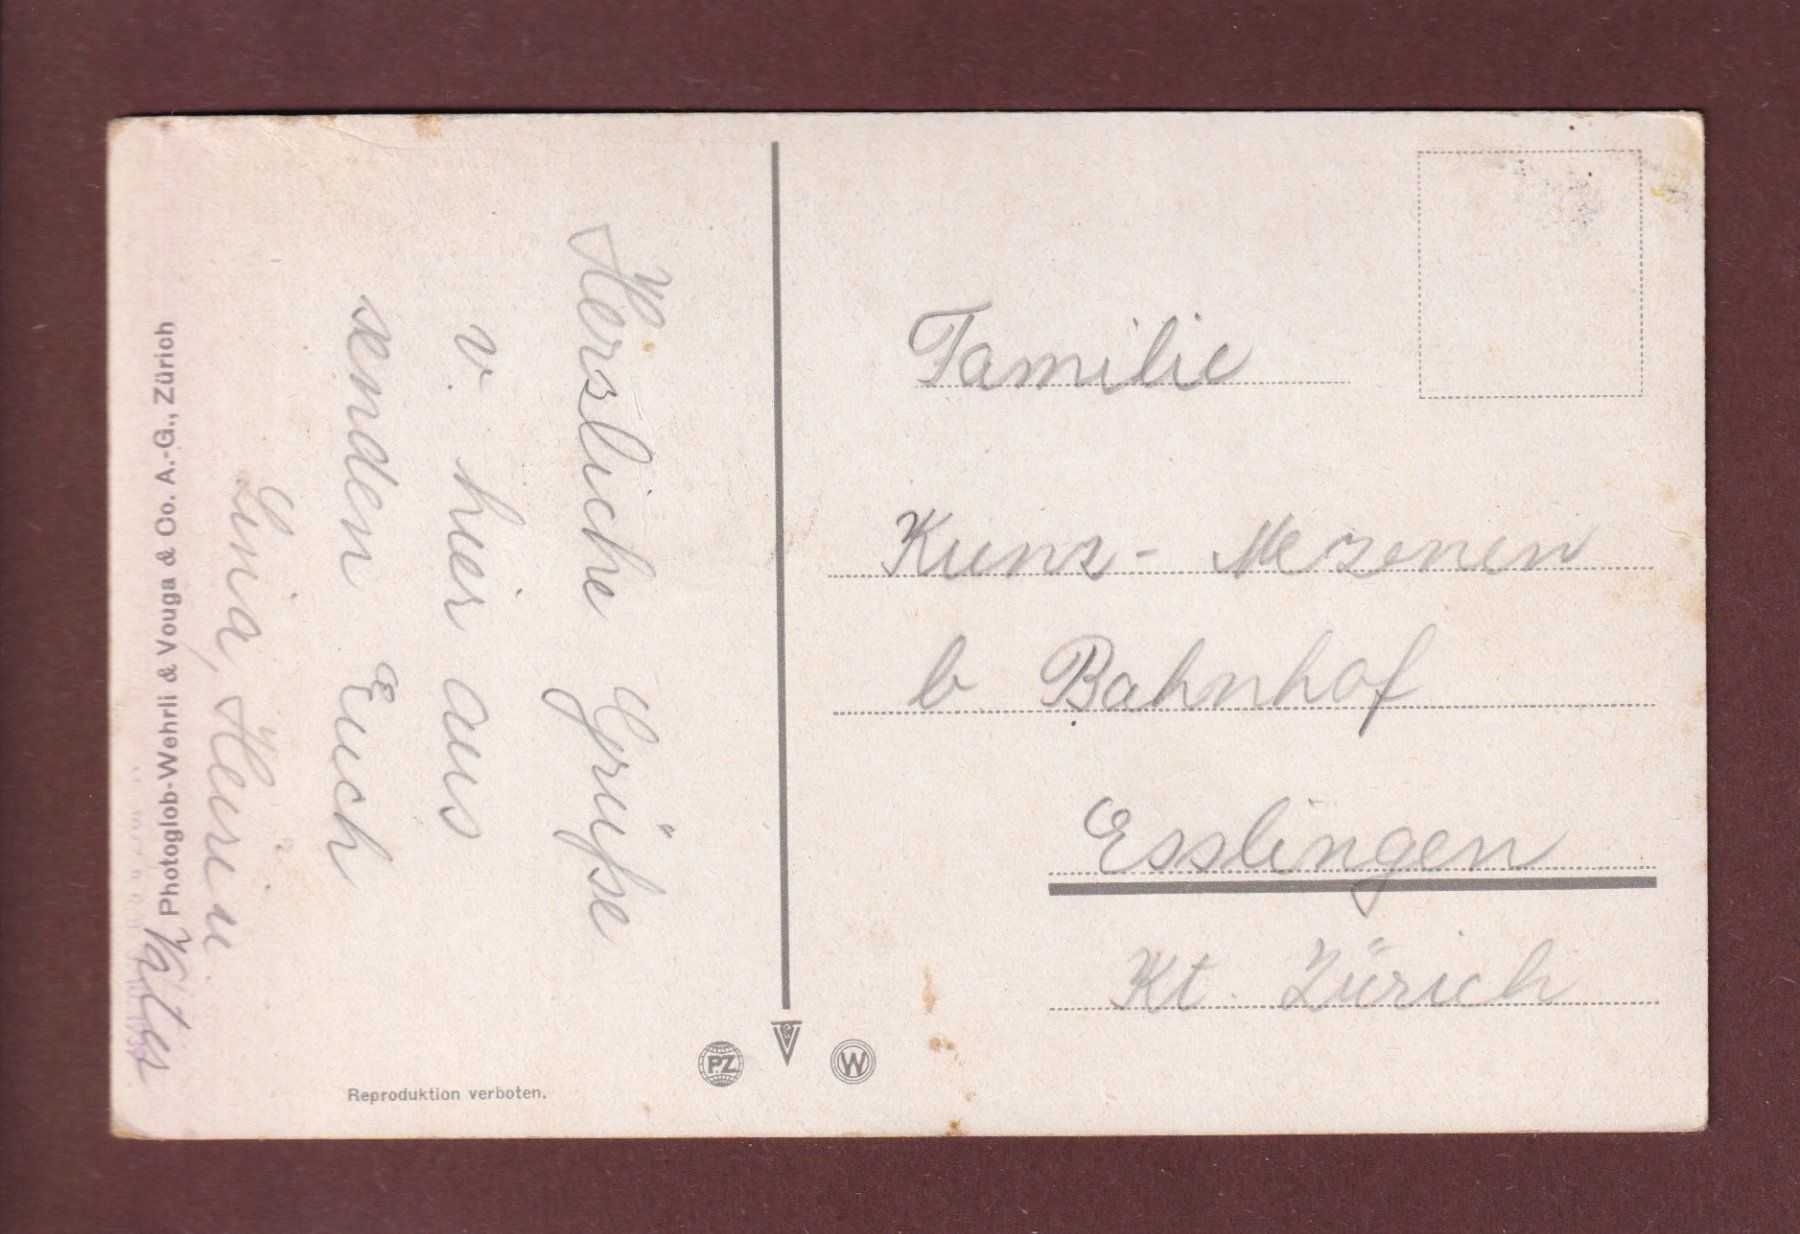 Herzliche Grüße
v. hier aus
senden Euch
Lina, Heirin
Vater
Photoglob-Wehrli & Vouga & Co. A.-G., Zürich
Reproduktion verboten.
PZ
V
W
Familie
Kunz-
b Bahnhof
Esslingen
Kt. Zürich